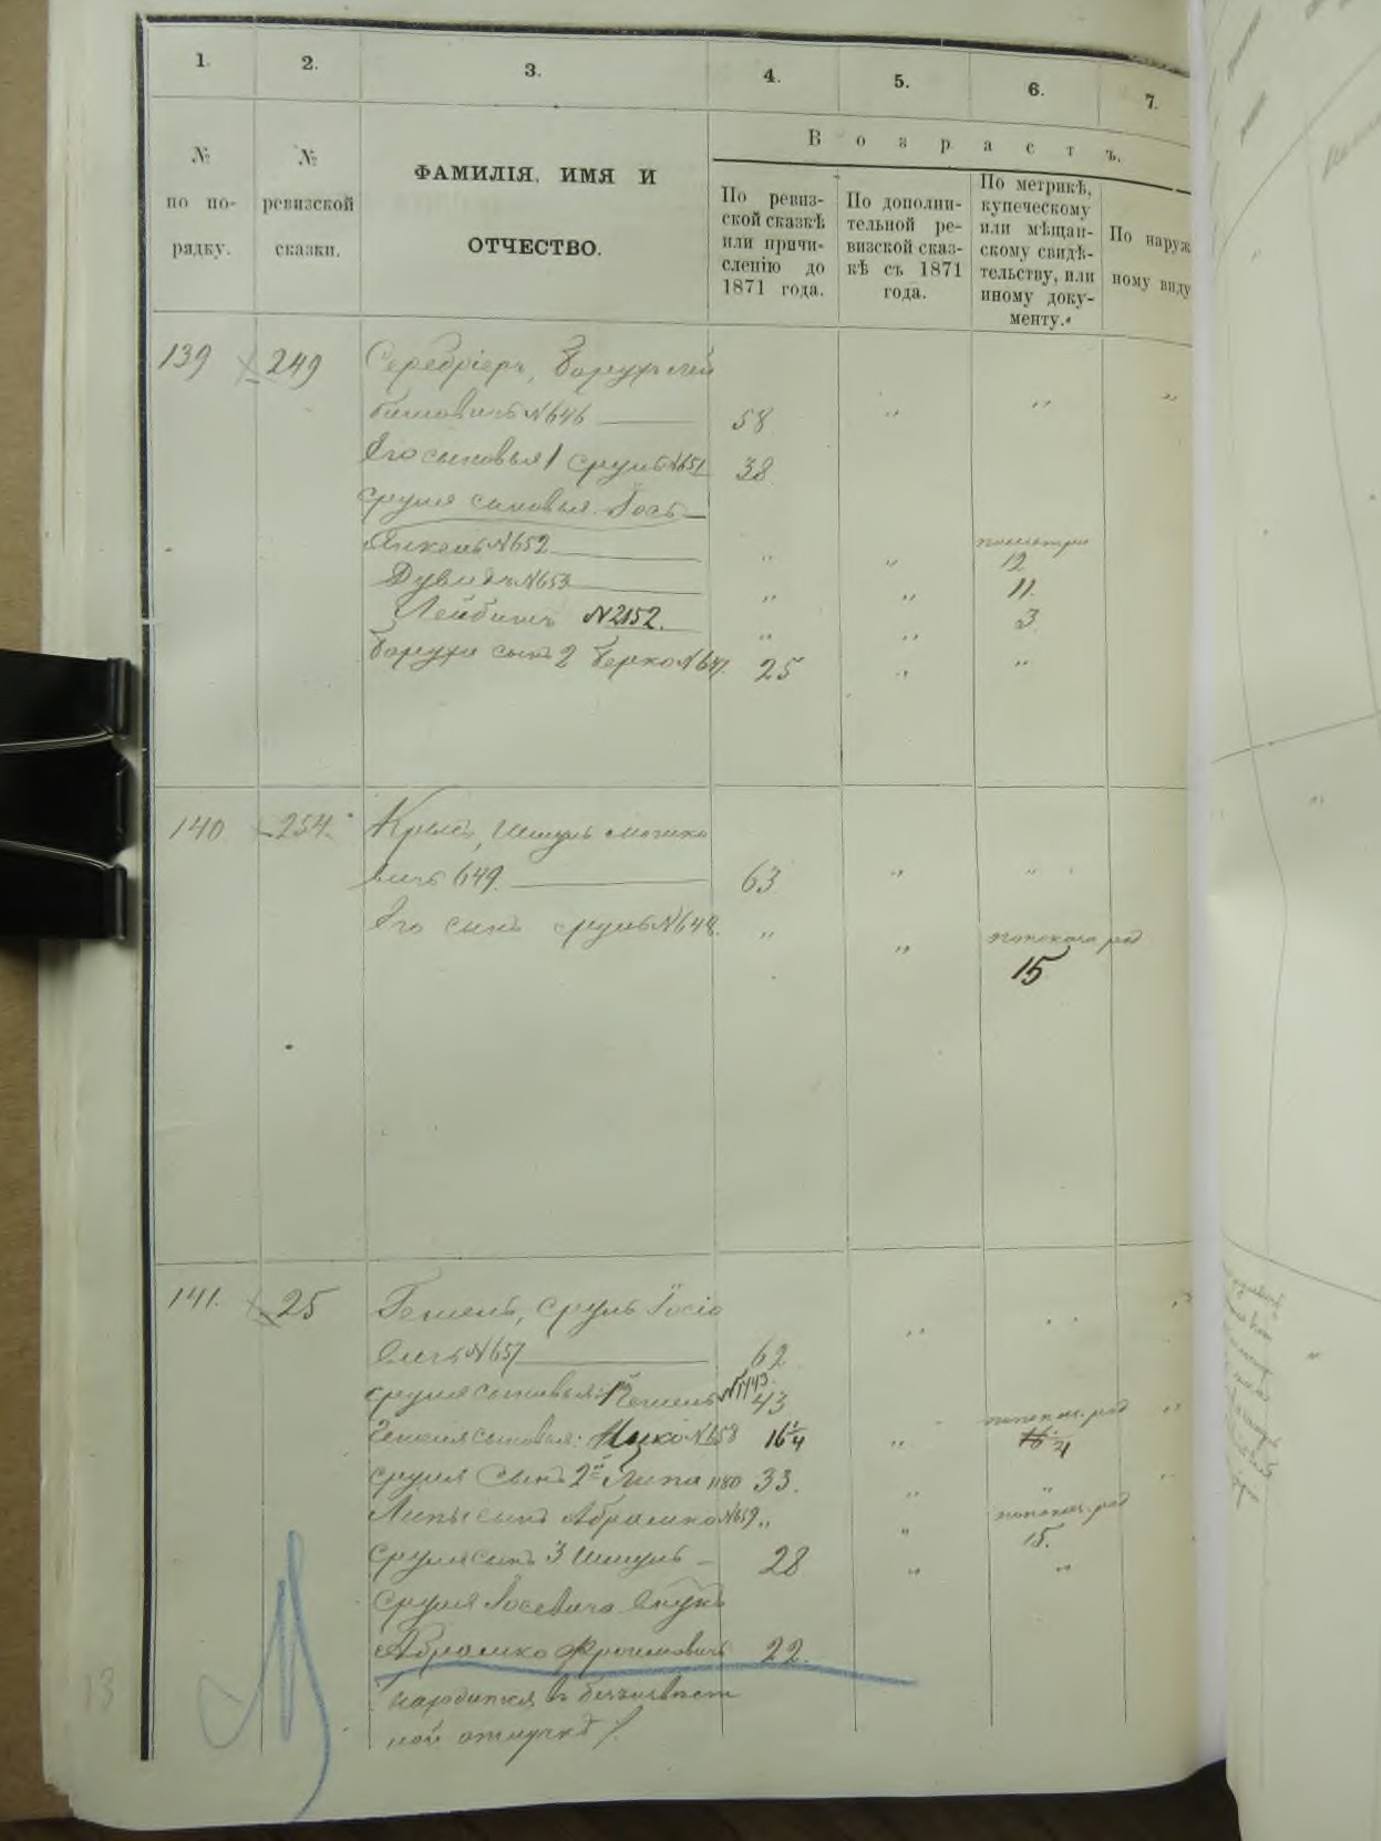 1. 2. 3. 4. 5. 6. 7.
В о з р а с т ъ.
№ по по- рядку.
№ ревизской сказки.
ФАМИЛІЯ, ИМЯ И
ОТЧЕСТВО.
По ревиз-
ской сказкѣ
или причи-
сленію до
1871 года.
По дополни-
тельной ре-
визской сказ-
кѣ съ 1871
года.
По метрикѣ,
купеческому
или мѣщан-
скому свидѣ-
тельству, или
иному доку-
менту.
По наруж
ному виду
139 249 Серебріеръ, Борухъ Лей
бишовичъ № 646 58 " " "
Его сыновья 1 Сруль № 651 38
Сруля сыновья Іось
Янкель № 652 " " 12
Дувидъ № 653 " " 11.
Лейбишъ № 2152. " " 3
Боруха сынъ 2 Берко № 647. 25 " "
140 254. Крыгъ, Шмуль Мошко
вичъ 649. 63 " "
Его сынъ Сруль № 648. " " 15
141. 25 Сруль Іосіо
вичъ № 657 62 " "
Сруля сыновья: 1 № 1143. 43
сыновья: № 658 16 1/4 "
Сруля сынъ 2й Липа 1180 33. " "
Липы сынъ Абрашко № 659 " " 15.
Сруля сынъ 3 Шмуль 28 " "
Сруля Іосевича внукъ
Абрашко Фроимовичъ 22.
находится в безызвѣст
ной отлучкѣ /.
13